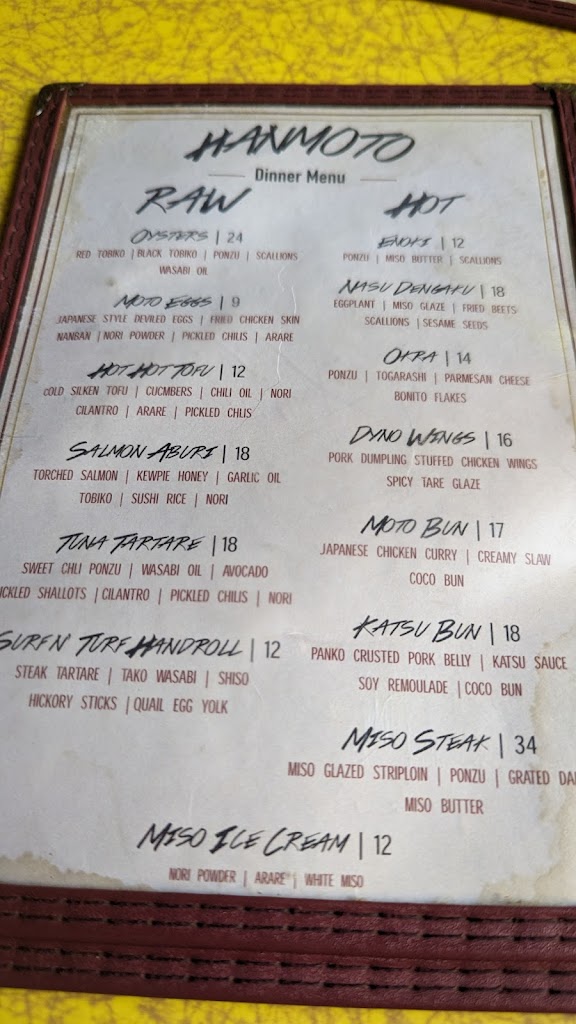 HANMOTO
Dinner Menu
RAW
OYSTERS | 24
RED TOBIKO | BLACK TOBIKO | PONZU | SCALLIONS
WASABI OIL
MOTO EGGS | 9
JAPANESE STYLE DEVILED EGGS | FRIED CHICKEN SKIN
NANBAN | NORI POWDER | PICKLED CHILIS | ARARE
HOT HOT TOFU | 12
COLD SILKEN TOFU | CUCMBERS | CHILI OIL | NORI
CILANTRO | ARARE | PICKLED CHLIS
SALMON ABURI | 18
TORCHED SALMON | KEWPIE HONEY | GARLIC OIL
TOBIKO | SUSHI RICE | NORI
TUNA TARTARE | 18
SWEET CHLI PONZU | WASABI OIL | AVOCADO
ICKLED SHALLOTS | CILANTRO | PICKLED CHILIS | NORI
SURF N' TURF HANDROLL | 12
STEAK TARTARE | TAKO WASABI | SHISO
HICKORY STICKS | QUAIL EGG YOLK
HOT
ENOKI | 12
PONZU | MISO BUTTER | SCALLIONS
NASU DENGAKU | 18
EGGPLANT | MISO GLAZE | FRIED BEETS
SCALLIONS | SESAME SEEDS
OKRA | 14
PONZU | TOGARASHI | PARMESAN CHEESE
BONITO FLAKES
DYNO WINGS | 16
PORK DUMPLING STUFFED CHICKEN WINGS
SPICY TARE GLAZE
MOTO BUN | 17
JAPANESE CHICKEN CURRY | CREAMY SLAW
COCO BUN
KATSU BUN | 18
PANKO CRUSTED PORK BELLY | KATSU SAUCE
SOY REMOULADE | COCO BUN
MISO STEAK | 34
MISO GLAZED STRIPLOIN | PONZU | GRATED DAI
MISO BUTTER
MISO ICE CREAM | 12
NORI POWDER | ARARE | WHITE MISO